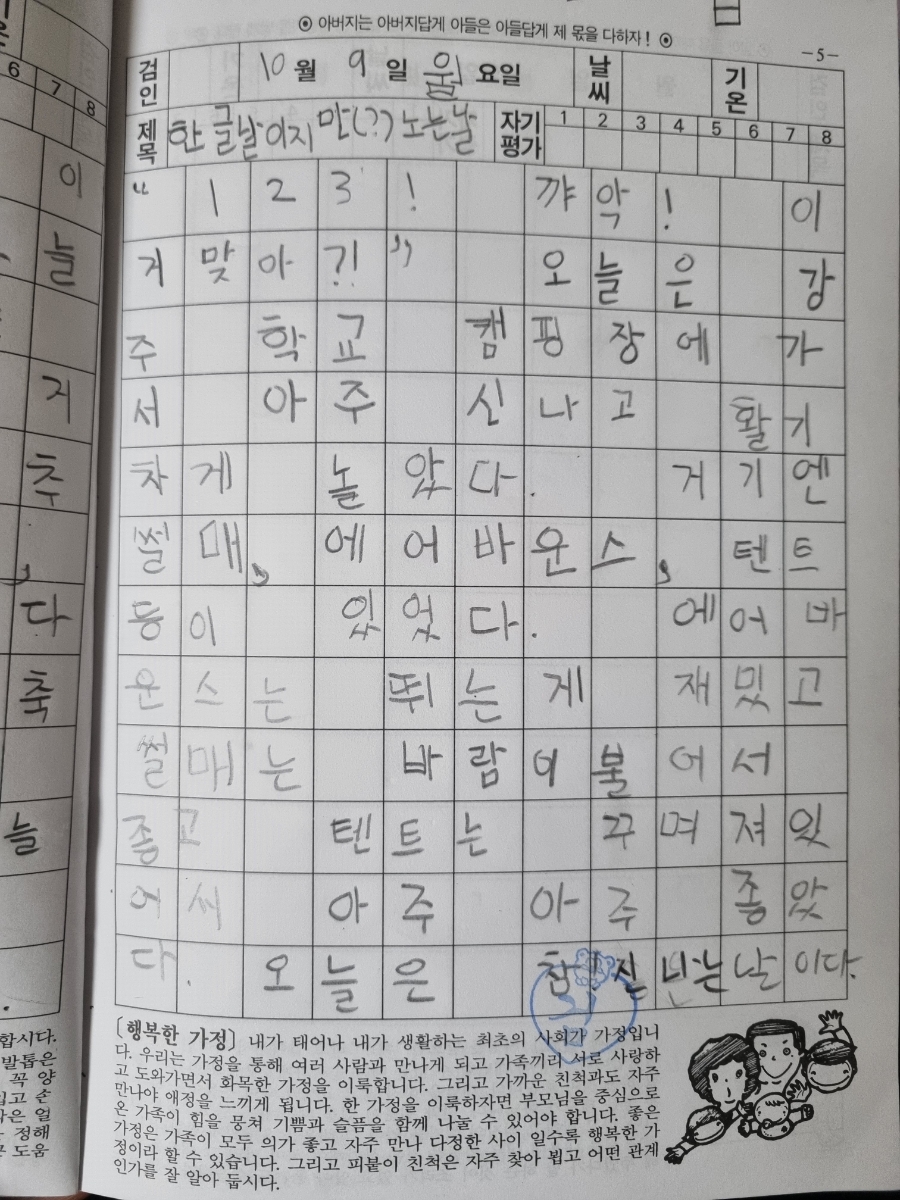 ◎ 아버지는 아버지답게 아들은 아들답게 제 몫을 다하자! ◎
-5-
검인 10월 9일 월요일 날씨 기온
제목 한글날이지만(??) 노는날 자기평가 1 2 3 4 5 6 7 8
“1 2 3! 꺄악! 이
거 맞아?!” 오늘은 강
주 학교 캠핑장에 가
서 아주 신나고 활기
차게 놀았다. 거기엔
썰매, 에어바운스, 텐트
등이 있었다. 에어바
운스는 뛰는게 재밌고
썰매는 바람이 불어서
좋고 텐트는 꾸며져있
어씨 아주 아주 좋았
다. 오늘은 참 신난는날이다.
[행복한 가정] 내가 태어나 내가 생활하는 최초의 사회가 가정입니
다. 우리는 가정을 통해 여러 사람과 만나게 되고 가족끼리 서로 사랑하
고 도와가면서 화목한 가정을 이룩합니다. 그리고 가까운 친척과도 자주
만나야 애정을 느끼게 됩니다. 한 가정을 이룩하자면 부모님을 중심으로
온 가족이 힘을 뭉쳐 기쁨과 슬픔을 함께 나눌 수 있어야 합니다. 좋은
가정은 가족이 모두 의가 좋고 자주 만나 다정한 사이 일수록 행복한 가
정이라 할 수 있습니다. 그리고 피붙이 친척은 자주 찾아 뵙고 어떤 관계
인가를 잘 알아 둡시다.
6 7 8
이
늘
거
추
다
축
늘
합시다.
발톱은
꼭 양
입고 손
작은 얼
정해
도움